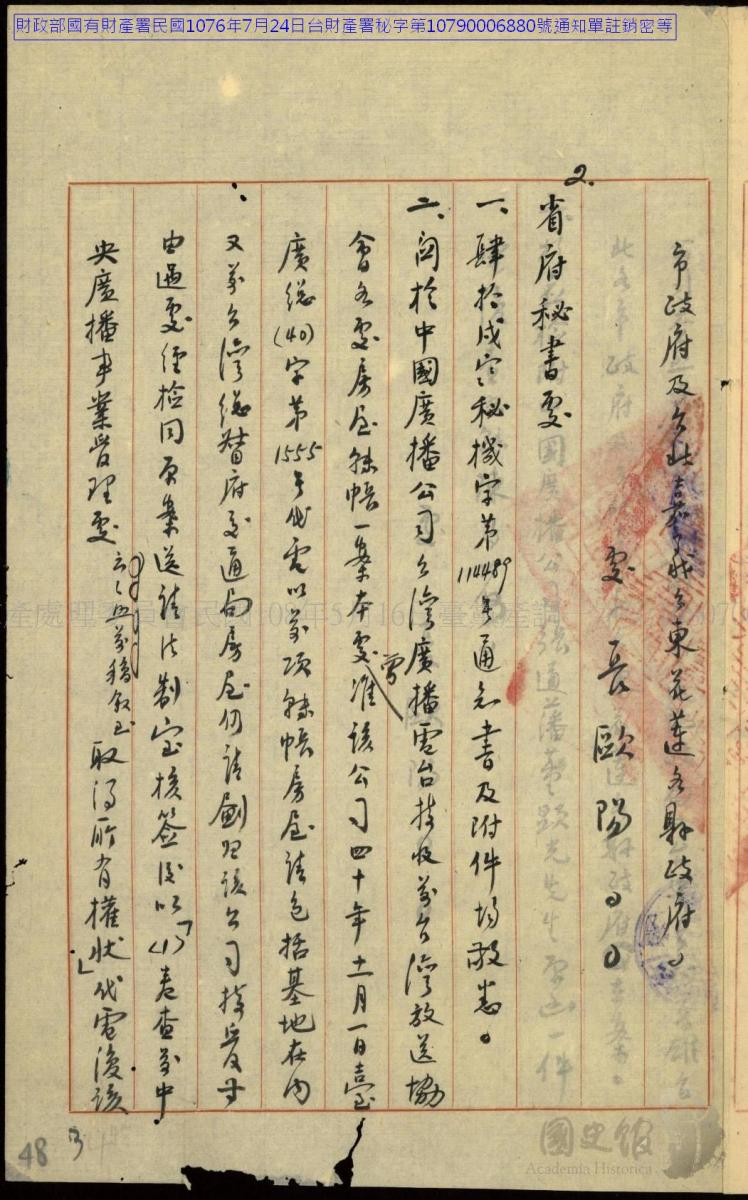 財政部國有財產署民國1076年7月24日台財產署秘字第10790006880號通知單註銷密等
2.
市政府及台北嘉義台東花蓮各縣政府。
處長歐陽。。
省府秘書處
一、肆拾戌宮秘機字第114489號通知書及附件均敬悉。
二、関於中國廣播公司台灣廣播電台接收前台灣放送協
會各處房屋轉帳一案本處曾准該公司四十年十一月一日臺
廣總(40)字第1555號代電以前項轉帳房屋請包括基地在內
又前台灣總督府交通局房屋仍請劃歸該公司接管等
由過處經檢同原案送請法制室核簽後以「(1)卷查前中
央廣播事業管理處 云云並前移敘至 取得所有權狀」代電復該
國史館
Academia Historica
48
3